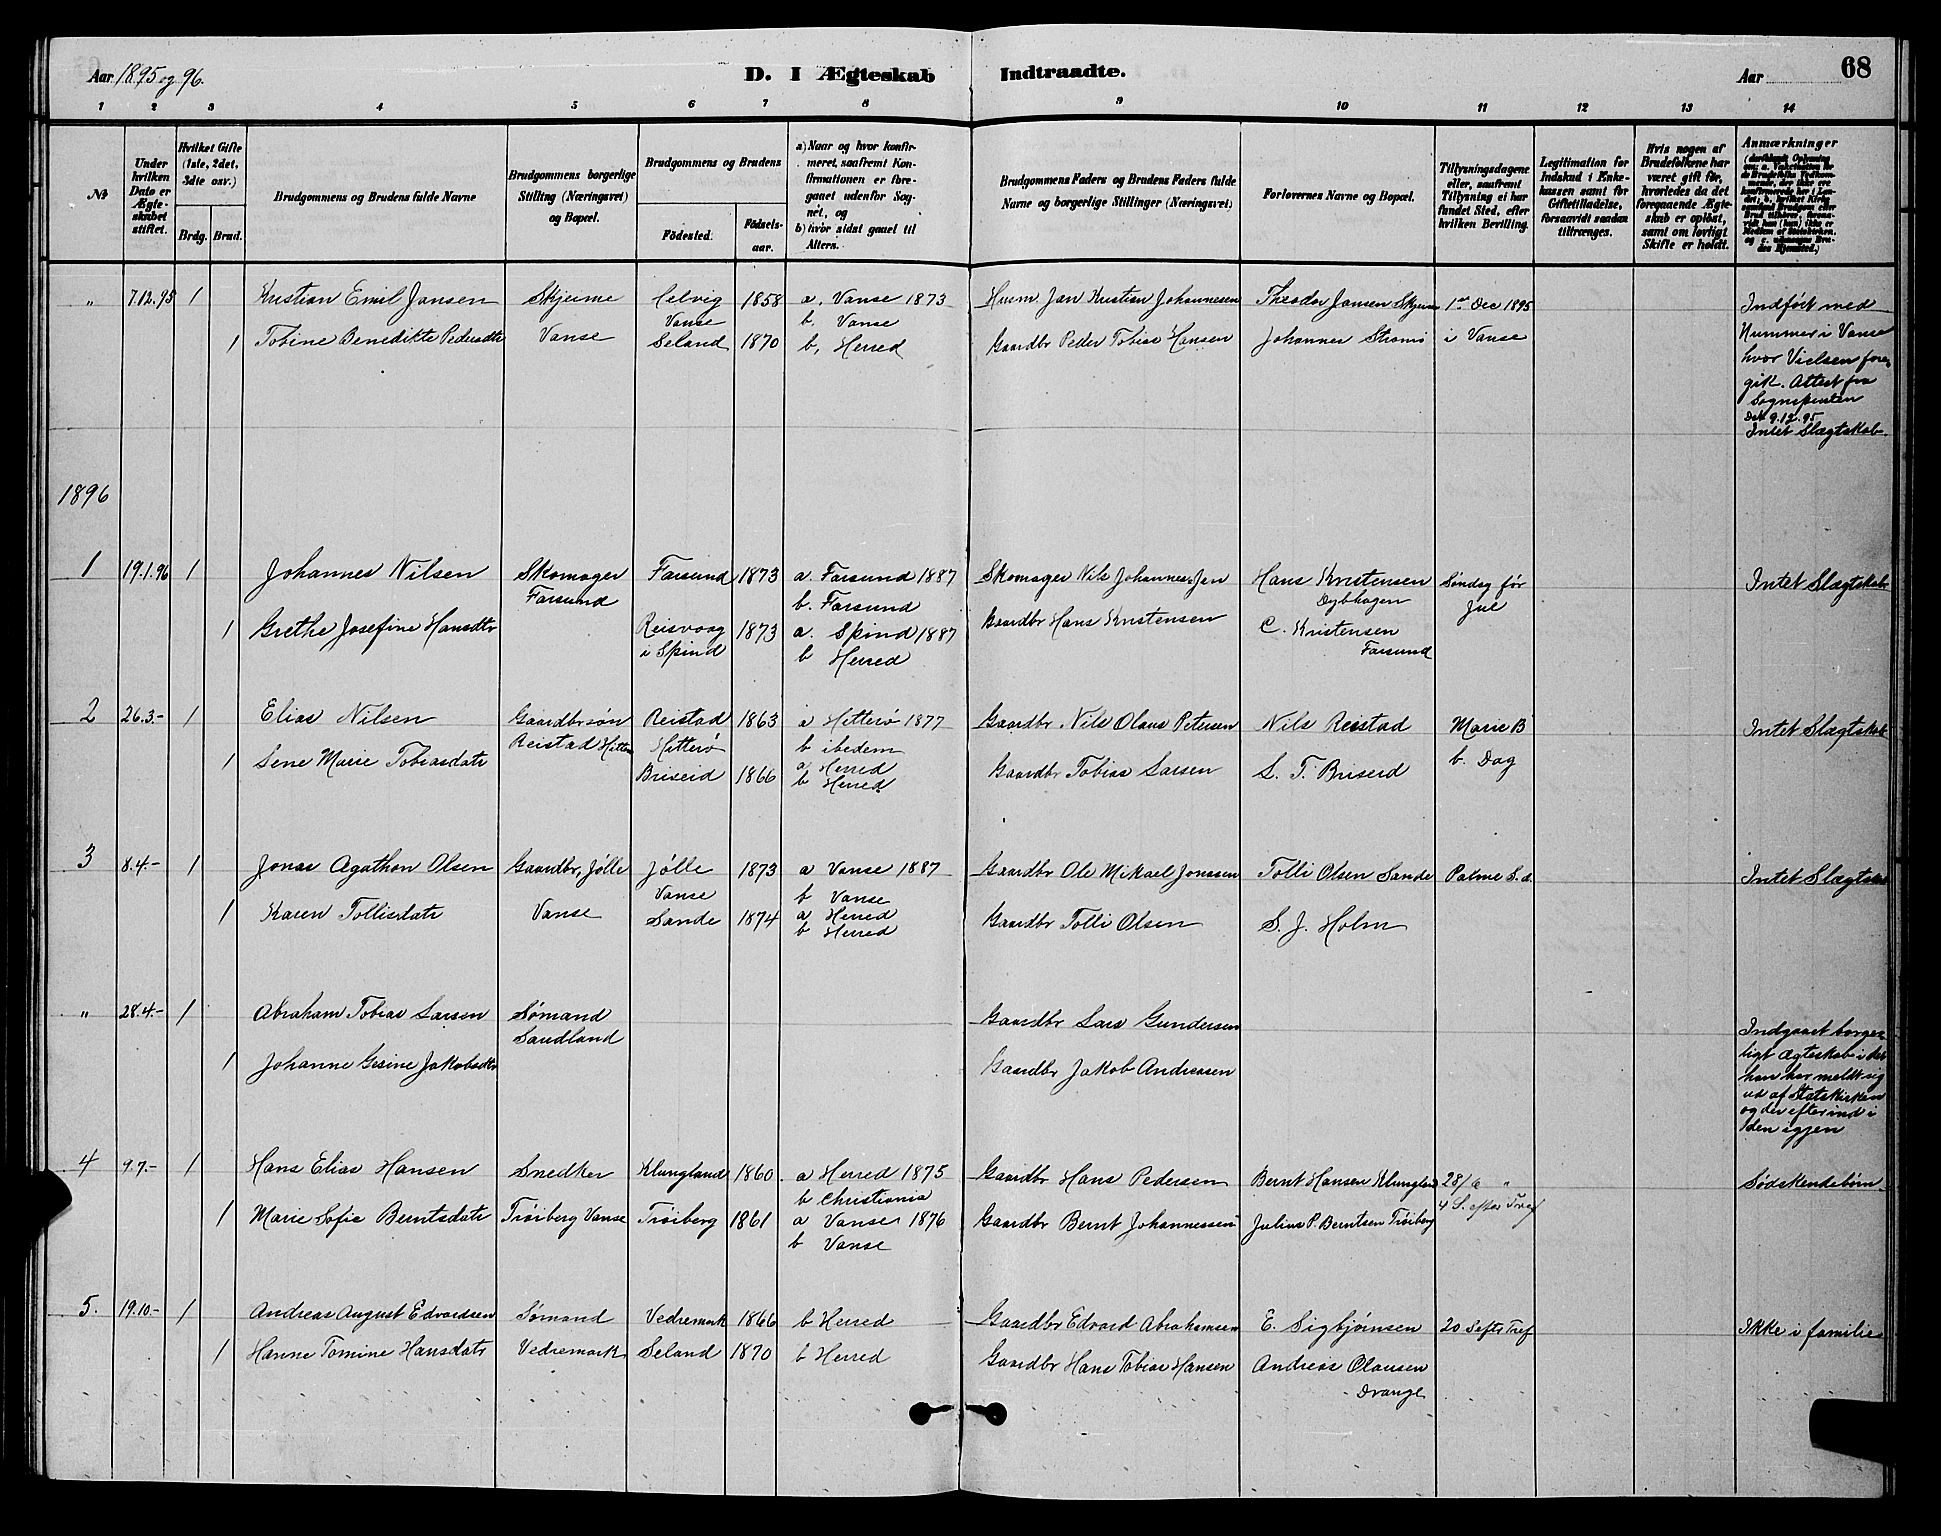 Aar 1895 og 96.
D. I Ægteskab Indtraadte.
Aar
68
1 2 3 4 5 6 7 8 9 10 11 12 13 14
No
Under hvilken Dato er Ægteskabet stiftet.
Hvilket Gifte (1ste, 2det, 3die osv.)
Brdg. Brud.
Brudgommens og Brudens fulde Navne
Brudgommens borgerlige Stilling (Næringsvei) og Bopæl.
Brudgommens og Brudens
Födested.
Födselsaar.
a) Naar og hvor konfirmeret, saafremt Konfirmationen er foregaaet udenfor Sognet, og
b) hvor sidst gaaet til Alters.
Brudgommens Faders og Brudens Faders fulde Navne og borgerlige Stillinger (Næringsvei)
Forlovernes Navne og Bopæl.
Tillysningsdagene eller, saafremt Tillysning ei har fundet Sted, efter hvilken Bevilling.
Legitimation for Indskud i Enkekassen samt for Giftetilladelse, forsaavidt saadan tiltrænges.
Hvis nogen af Brudefolkene har været gift för, hvorledes da det foregaaende Ægteskab er oplöst, samt om lovligt Skifte er holdt.
Anmærkninger
" 7.12.95 1 Kristian Emil Jansen Skjeime Helvig 1858 a. Vanse 1873 Husm. Jan Kristian Johannesen Theodor Jansen Skjeime 1ste Dec 1895 Indført med
Vanse b. Vanse Nummer i Vanse
1 Tobine Benedikte Pedersdtr Vanse Seland 1870 b, Herred Gaardbr Peder Tobias Hansen Johannes Stromö i Vanse
hvor Vielsen fore
gik. Attest fra
Sognepresten
Dat. 9.12.95
Intet Slægtskab.
1896
1 19.1.96 1 Johannes Nilsen Skomager Farsund 1873 a. Farsund 1887 Skomager Nils Johannessen Hans Kristensen Söndag før Intet Slægtskab
Farsund b. Farsund Dybhagen Jul
1 Grethe Josefine Hansdtr Reisvaag 1873 a. Spind 1887 Gaardbr Hans Kristensen C. Kristensen
i Spind b Herred Farsund
2 26.3.- 1 Elias Nilsen Gaardbrsøn Reistad 1863 a Hitterø 1877 Gaardbr Nils Olaus Petersen Nils Reistad Marie B Intet Slægtskab
Reistad Hitterø Hitterø b ibedem b. Dag
1 Lene Marie Tobiasdatr Briseid 1866 a Herred Gaardbr Tobias Larsen L. T. Briseid
b Herred.
3 8.4.- 1 Jonas Agathon Olsen Gaardbr, Jölle Jölle 1873 a Vanse 1887 Gaardbr Ole Mikael Jonassen Tolli Olsen Sande Palme S.d. Intet Slægtskab
Vanse b Vanse
1 Karen Tollisdatr Vanse Sande 1874 a Herred Gaardbr Tolli Olsen S. J. Holm
b Herred
" 28.4.- 1 Abraham Tobias Larsen Sømand Gaardbr Lars Gundersen Indgaaet borger-
Sandland ligt Ægteskab i det
1 Johanne Gesine Jakobsdtr Gaardbr Jakob Andreasen han har meldt sig
ud af Statskirken
og derefter ind i
den igjen
4 9.7.- 1 Hans Elias Hansen Snedker Klungland 1860. a Herred 1875 Gaardbr Hans Pedersen Bernt Hansen Klungland 28/6 " Sødskendebörn
b Christiania 4 S. efter Tref
1 Marie Sofie Berntsdatr Trøiberg Vanse Trøiberg 1861 a Vanse 1876 Gaardbr Bernt Johannessen Julius P. Berntsen Trøiberg
b Vanse
5. 19.10.- 1 Andreas August Edvardsen Sømand Vedremork 1866 b Herred Gaardbr Edvard Abrahamsen E. Sigbjørnsen 20 S efter Tref Ikke i familie
1 Hanne Tomine Hansdatr Vedremork Seland 1870 b Herred Gaardbr Hans Tobias Hansen Andreas Olausen
Drange